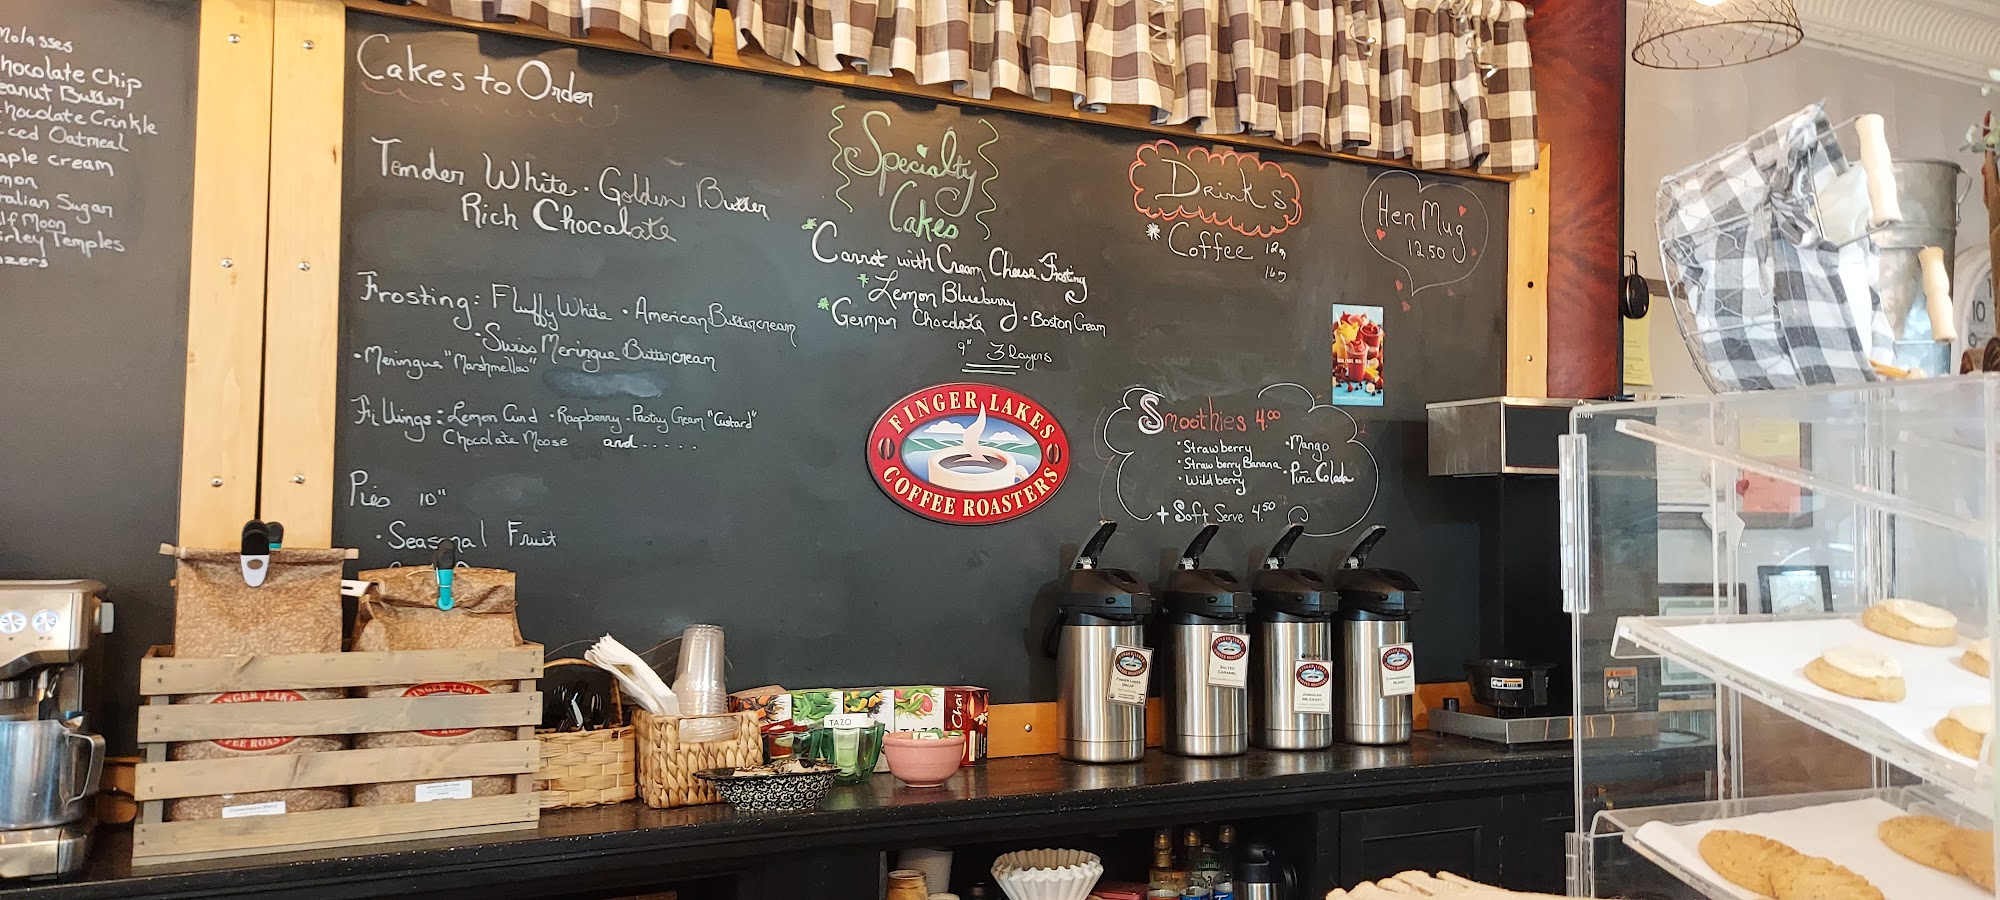 Molasses
Chocolate Chip
eanut Butter
Chocolate Crinkle
Iced Oatmeal
aple cream
mon
alian Sugar
lf Moon
irley Temples
azers
Cakes to Order
Tender White · Golden Butter
Rich Chocolate
Frosting: Fluffy White · American Buttercream
· Swiss Meringue Buttercream
· Meringue "Marshmellow"
Fillings: Lemon Curd · Raspberry · Pastry Cream "Custard"
Chocolate Moose and.....
Pies 10"
· Seasonal Fruit
Specialty
Cakes
* Carrot with Cream Cheese Frosting
* Lemon Blueberry
* German Chocolate · Boston Cream
9" 3 layers
FINGER LAKES
COFFEE ROASTERS
Drinks
* Coffee 12
16
Hen Mug
12.50
Smoothies 4.00
· Strawberry · Mango
· Strawberry Banana · Piña Colada
· Wildberry
+ Soft Serve 4.50
FINGER LAKES
COFFEE ROAST
FINGER LAKE
TAZO
Chai
SALTED
CARAMEL
JAMAICAN
ME CRAZY
10